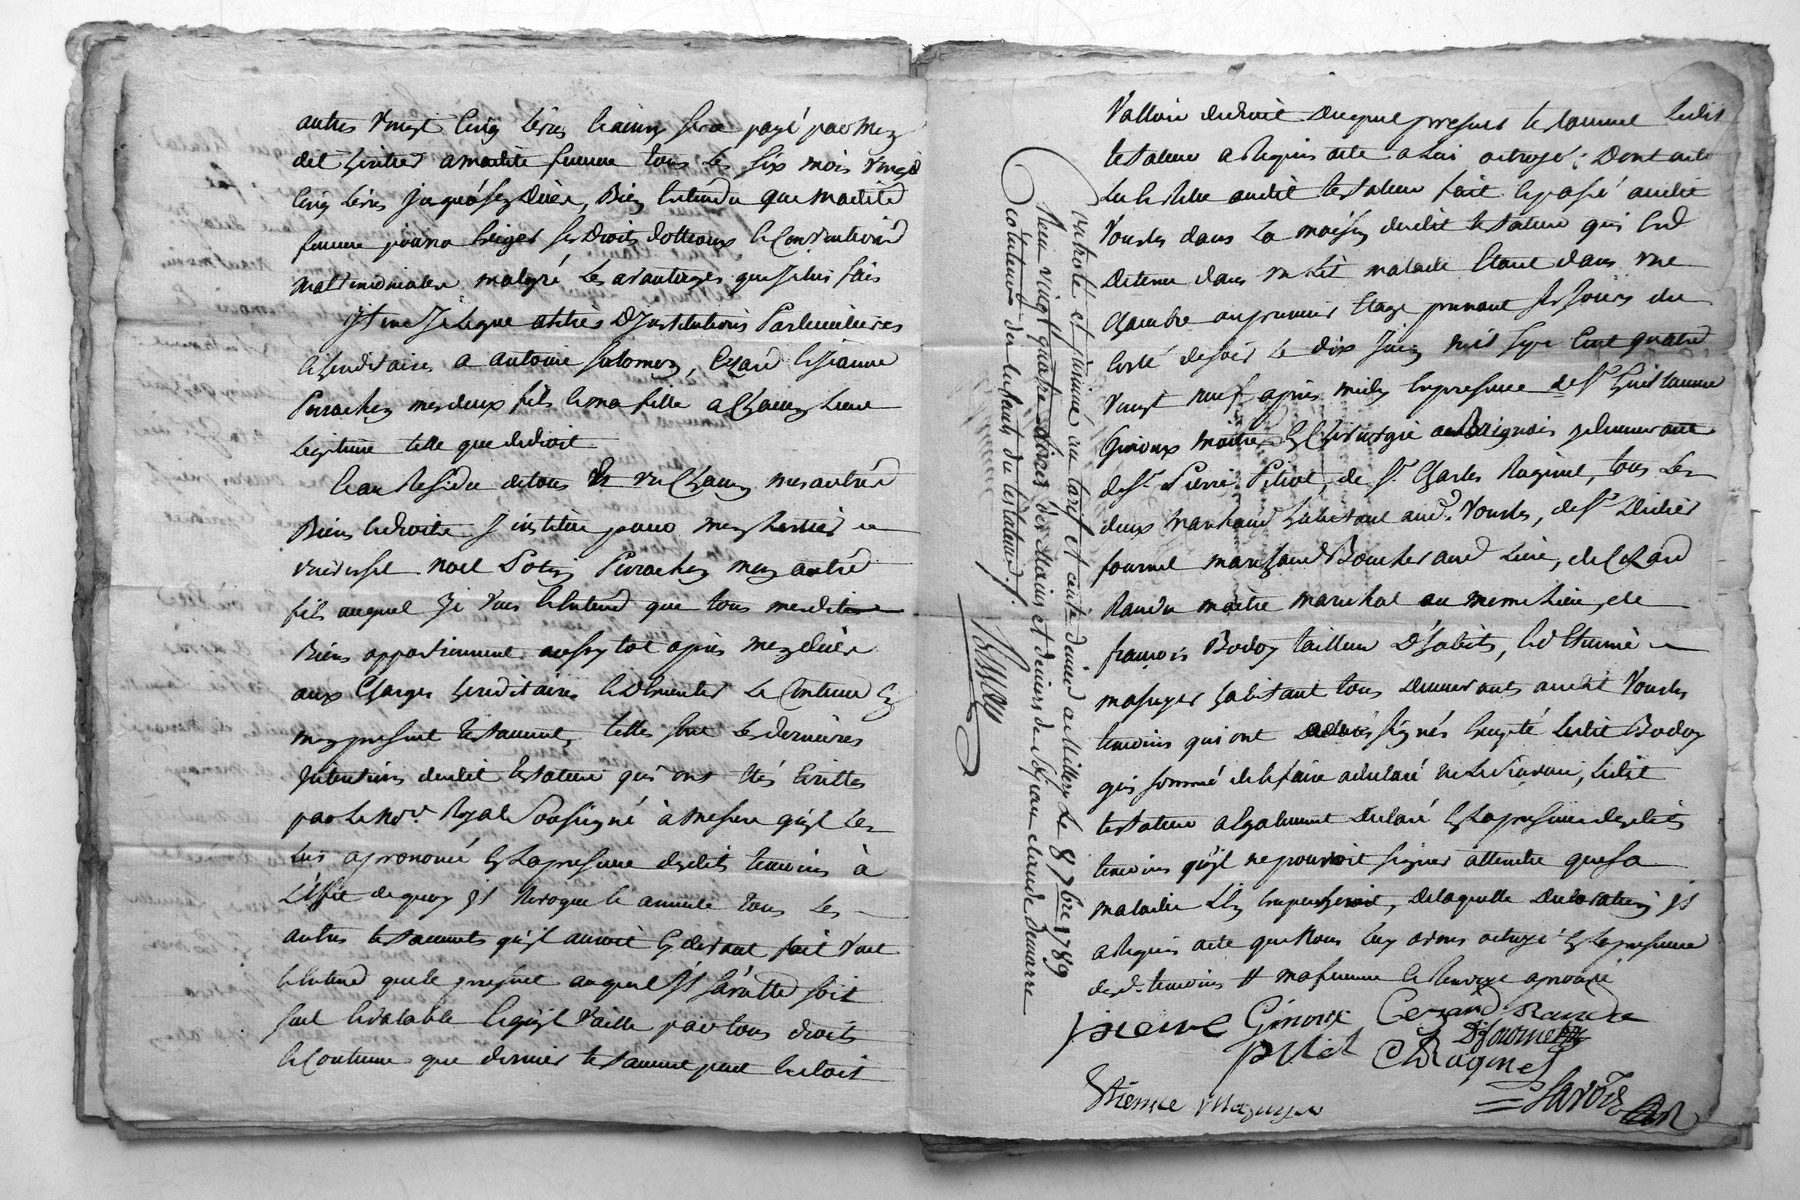 autres vingt cinq livres et ainsy sera payé par mon
dit héritier a madite femme tous les six mois vingt
cinq livres jusqu'à son décès, Bien entendu que madite
femme pourra exiger ses droits dotteaux et conventions
mattrimoniales malgré les avantages que je luy fais
Item Je legue attitres D'Institutions Particulieres
et héréditaires a antoine Salomon, Cezard et Jeanne
Perrachon mes deux fils et ma fille a chacun leur
Légitime telle que de droit
Et au Residu de tous et un chacun mes autres
Biens et droits J'institue pour mon héritier
universel noel Perrachon mon autre
fils auquel Je veux et entend que tous mesdits
Biens appartiennent aussytot après mon décès
aux charges héréditaires et d'executer le contenu En
mon present testament, telles sont les dernieres
Intentions dudit testateur qui ont étés Ecrittes
par le No.re Royal Soussigné à mesure qu'il les
luy a prononcé En la presence desdits temoins à
L'effet de quoy Il revoque et annulle tous les
autres testaments qu'il auroit Cy devant fait veut
et entend que le present auquel Il s'arrette soit
seul et valable et qu'il vaille par tous droits
et Coutume que dernier testament peut et doit
Valloir de droit duquel present testament ledit
testateur a Requis acte a lui octroyé; Dont acte
Lu et relu audit testateur fait et passé audit
Vourles dans la maison dudit testateur qui est
detenu dans un Lit malade Etant dans une
chambre au premier Etage prenant ses jours du
Coté de soir le dix Juin mil sept Cent quatre
Vingt neuf après midy En presence de s.r Guillaume
Ginoux maitre En chirurgie a Brignais y demeurant
de s.r Pierre Pitiot, de s.r Charles Raginel, tous les
deux marchands habitant aud.t Vourles, de s.r Didier
fournel marchand Boucher aud.t Lieu, de Cezard
Randu maitre marechal au meme Lieu, de
françois Bodoy tailleur D'habits, et d'Etienne
mazuyer habitant tous demeurants audit Vourles
temoins qui ont signés Excepté ledit Bodoy
qui sommé de le faire a declaré ne le scavoir, ledit
testateur a Egalement declaré En la presence desdits
temoins qu'il ne pouvoit signer attendu que sa
maladie L'En empechoit, de laquelle declaration Il
a Requis acte que nous luy avons octroyé En la presence
desd.ts temoins # ma femme et Renvoy aprouvé
Ginoux Cezard Randu
Pitiot C Raginel D fournel
Etienne Mazuyer
Controlé et insinué au tarif et acte dernier a Millery Le 8 7bre 1789
Reçu vingt quatre livres des Mains et deniers de s.r Jean claude
des enfants du testateur./.